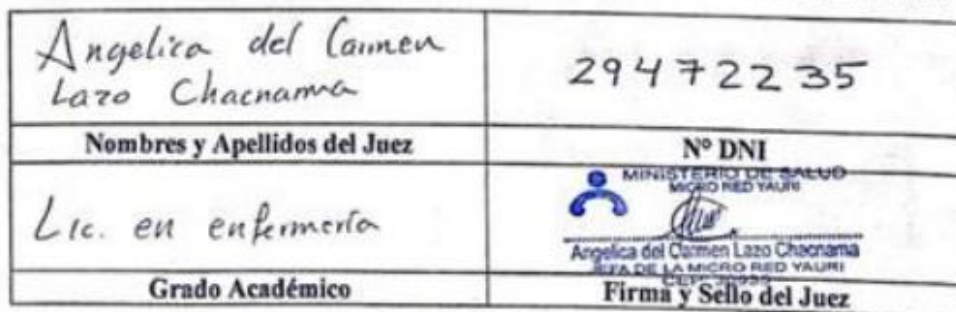 Angelica del Carmen
Lazo Chacnama
29472235
Nombres y Apellidos del Juez
Nº DNI
Lic. en enfermería
MINISTERIO DE SALUD
MICRO RED YAURI
Angelica del Carmen Lazo Chacnama
JEFA DE LA MICRO RED YAURI
Grado Académico
Firma y Sello del Juez